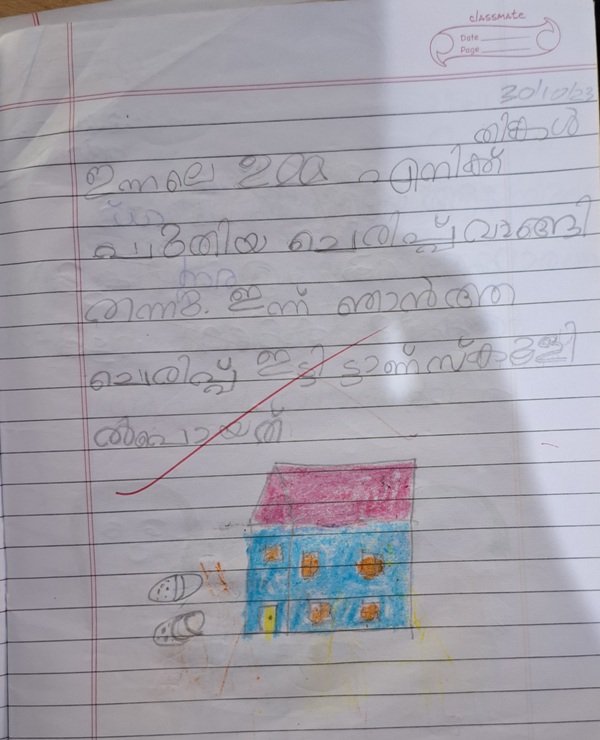 classmate
Date
Page
30/10/23
തിങ്കൾ
ഇന്നലെ ഉമ്മ എനിക്ക്
പുതിയ ചെരിപ്പ് വാങ്ങി
തന്നു. ഇന്ന് ഞാൻ ആ
ചെരിപ്പ് ഇട്ടിട്ടാണ് സ്കൂളി
ൽ പോയത്